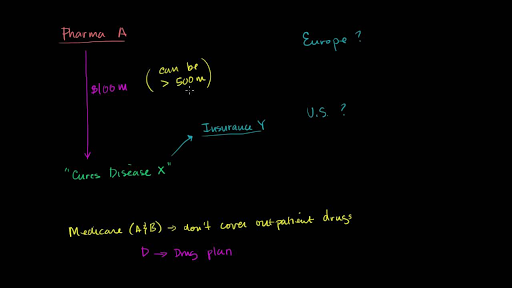 Pharma A
Europe ?
$100m
(can be
> 500m)
U.S. ?
Insurance Y
"Cures Disease X"
Medicare (A&B) → don't cover outpatient drugs
D → Drug plan